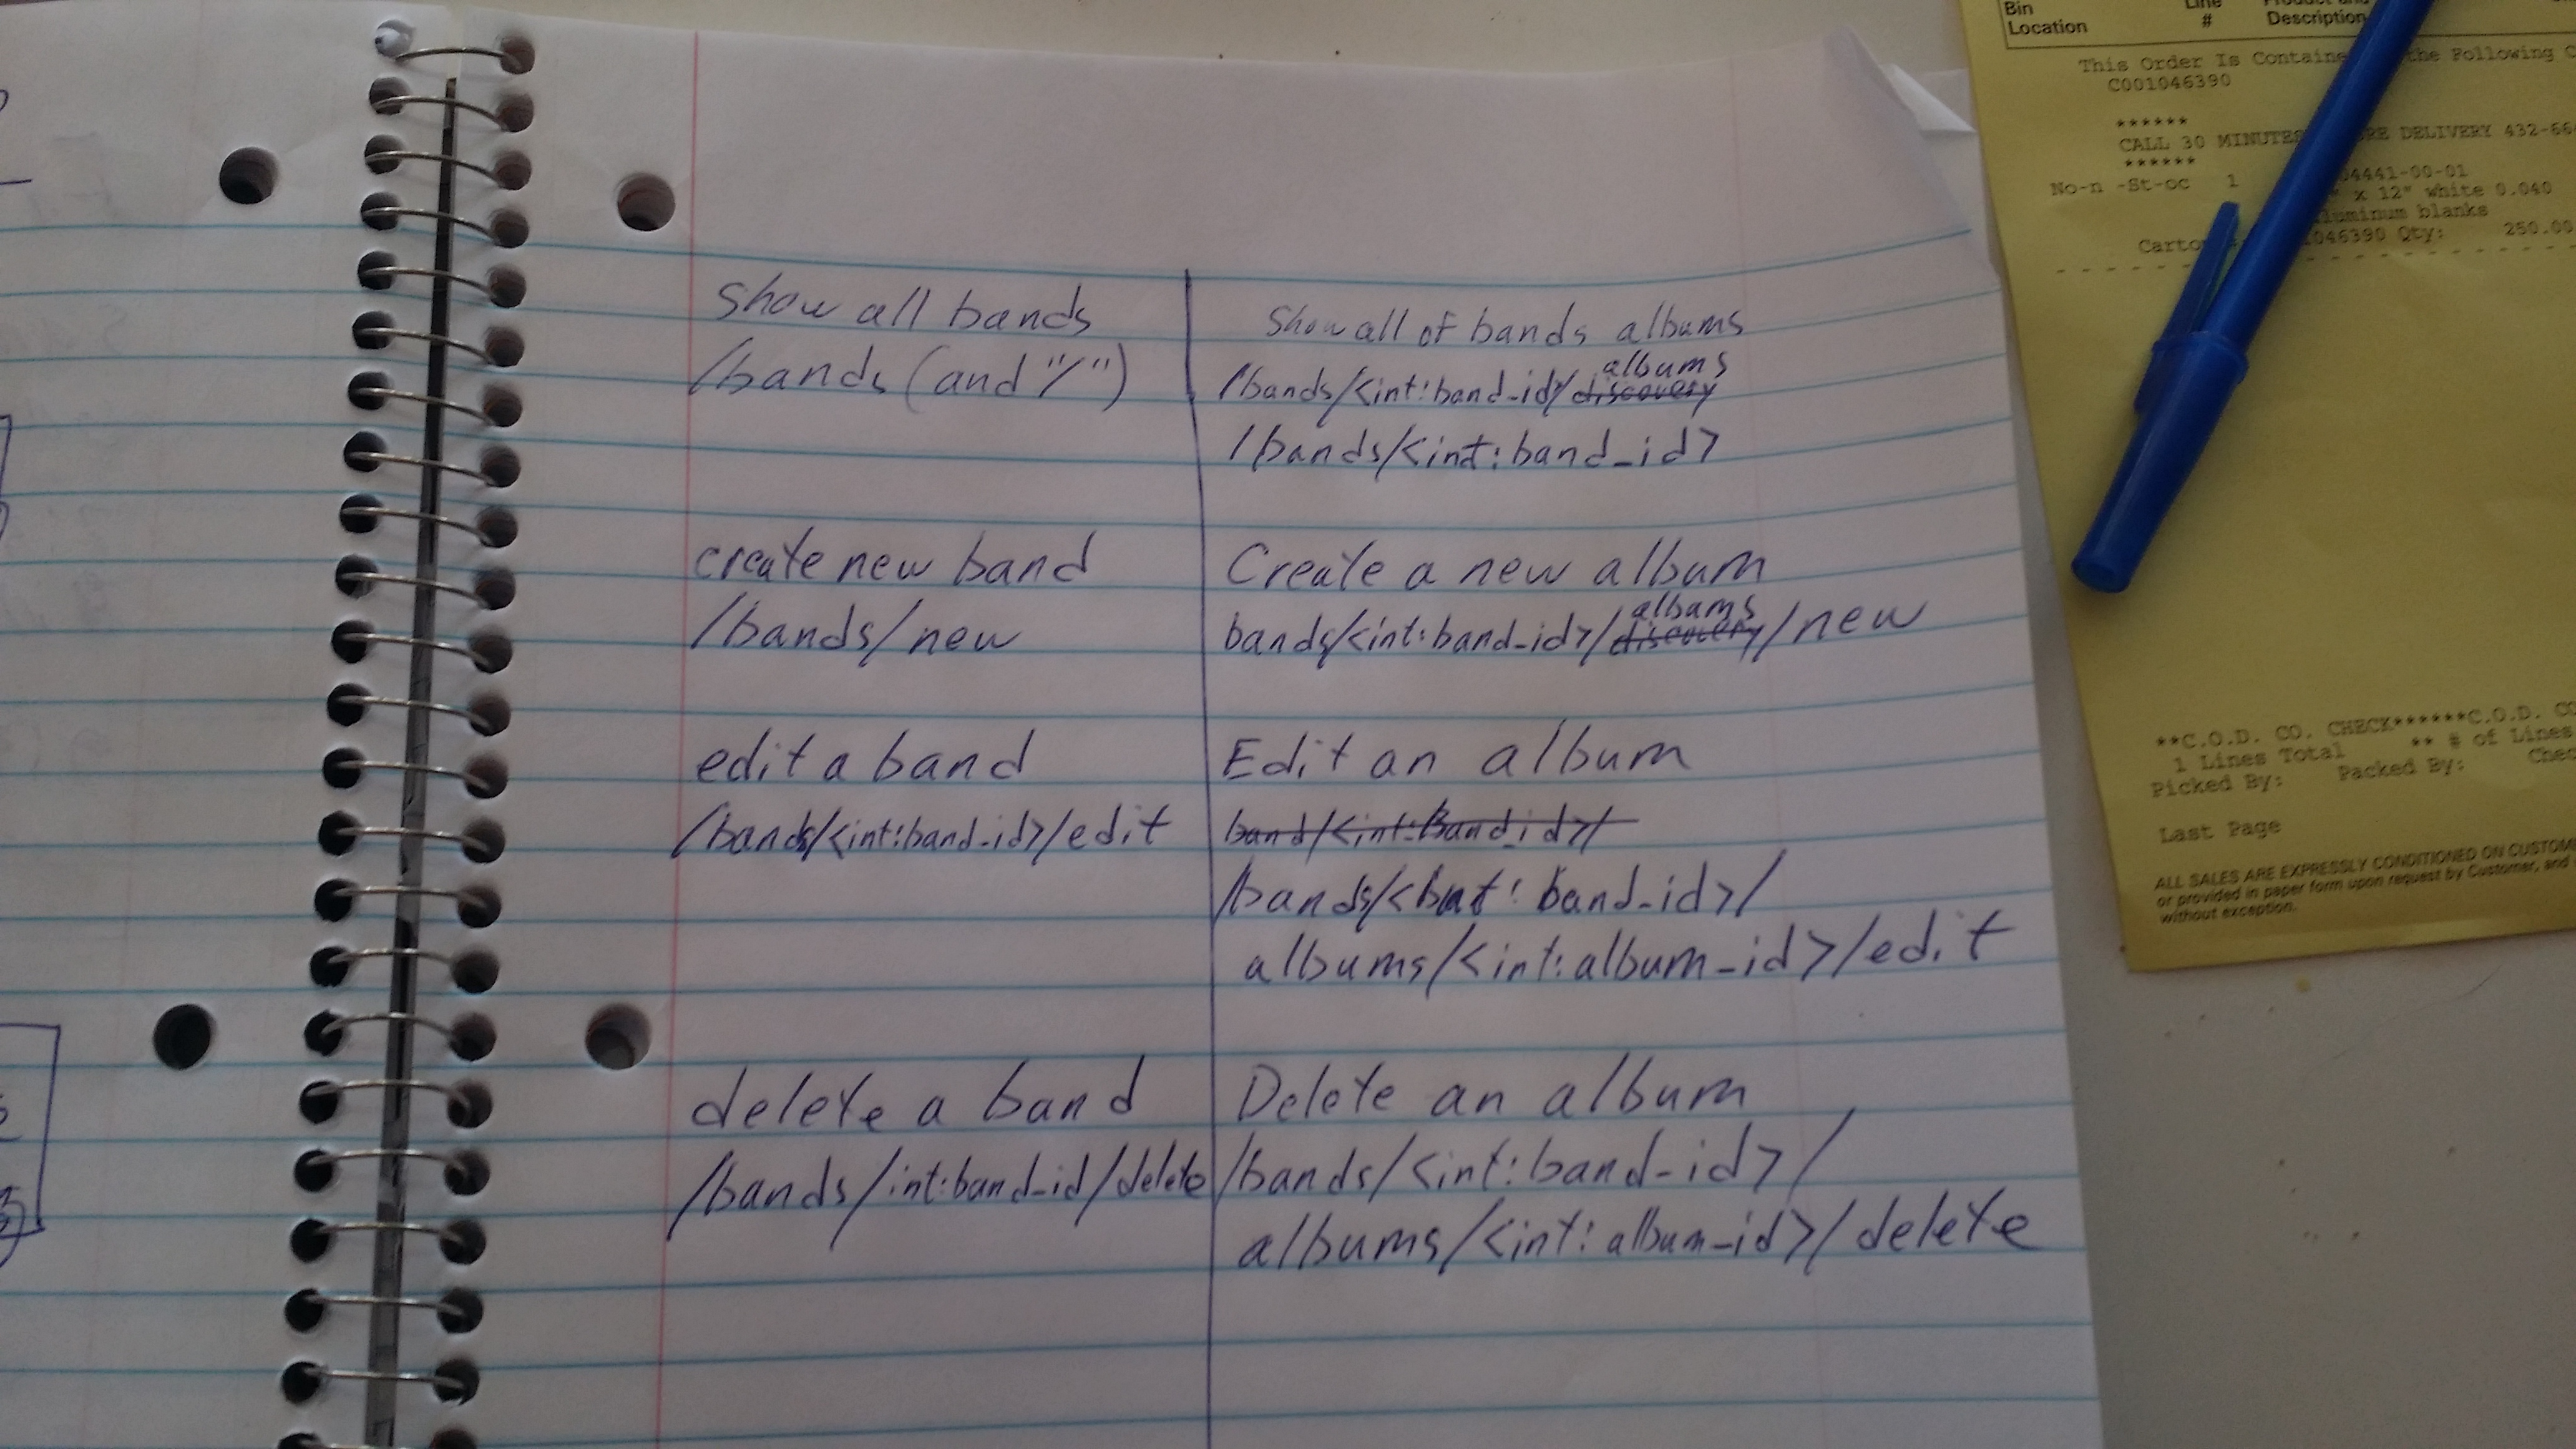 show all bands
/bands (and "/")
create new band
/bands/new
edit a band
/bands/<int:band_id>/edit
delete a band
/bands/int:band_id/delete
Show all of bands albums
albums
/bands/<int:band_id>/discovery
/bands/<int:band_id>
Create a new album
albums
bands/<int:band_id>/discovery/new
Edit an album
band/<int:Band_id>/
/bands/<int: band_id>/
albums/<int:album_id>/edit
Delete an album
/bands/<int:band_id>/
albums/<int:album_id>/delete
Bin
Location
Line
#
Product and
Description
This Order Is Containe the Following
C001046390
******
CALL 30 MINUTES RE DELIVERY 432-66
******
No-n -St-oc 1 04441-00-01
x 12" white 0.040
luminum blanks
Carto 1046390 Qty: 250.00
**C.O.D. CO. CHECK******C.O.D. CO
1 Lines Total ** # of Lines
Picked By: Packed By: Chec
Last Page
ALL SALES ARE EXPRESSLY CONDITIONED ON CUSTOME
or provided in paper form upon request by Customer, and
without exception.